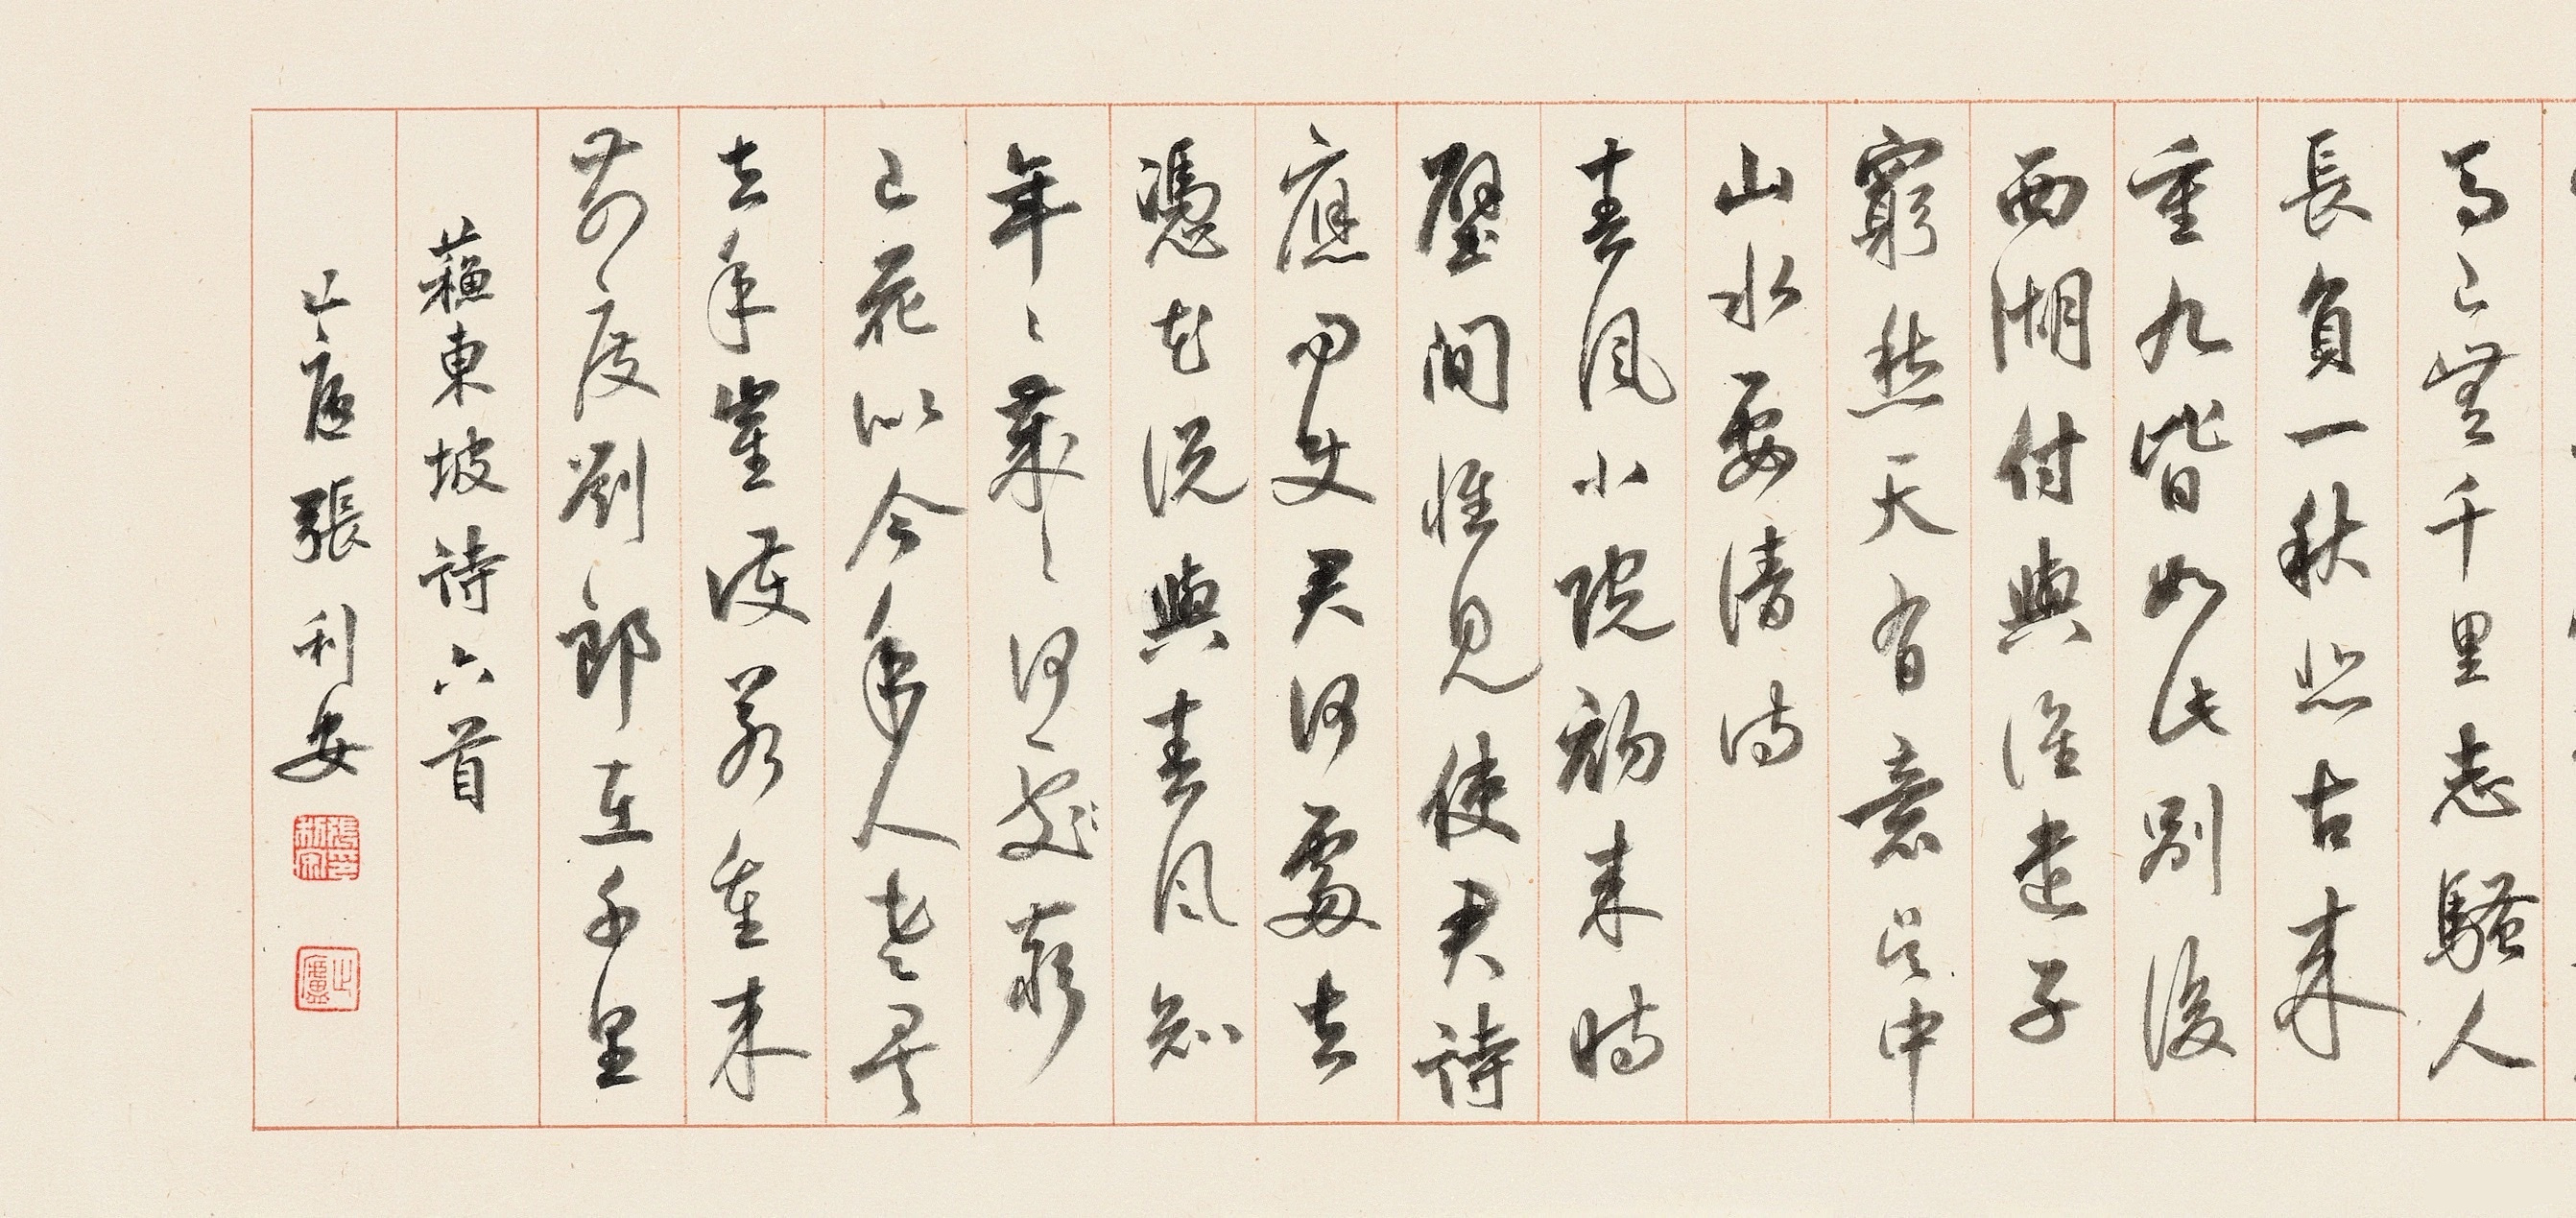 馬已無千里志騷人
長負一秋悲古來
重九皆如此別後
西湖付與誰遣子
窮愁天有意吳中
山水要清詩
春風小院初來時
壁間惟見使君詩
應問史君何處去
憑花說與春風知
年〻歲〻何處窮
已花似今年人老矣
去年崔護若重來
前度劉郎在千里
蘇東坡詩六首
止廬張利安
張利安印
止廬